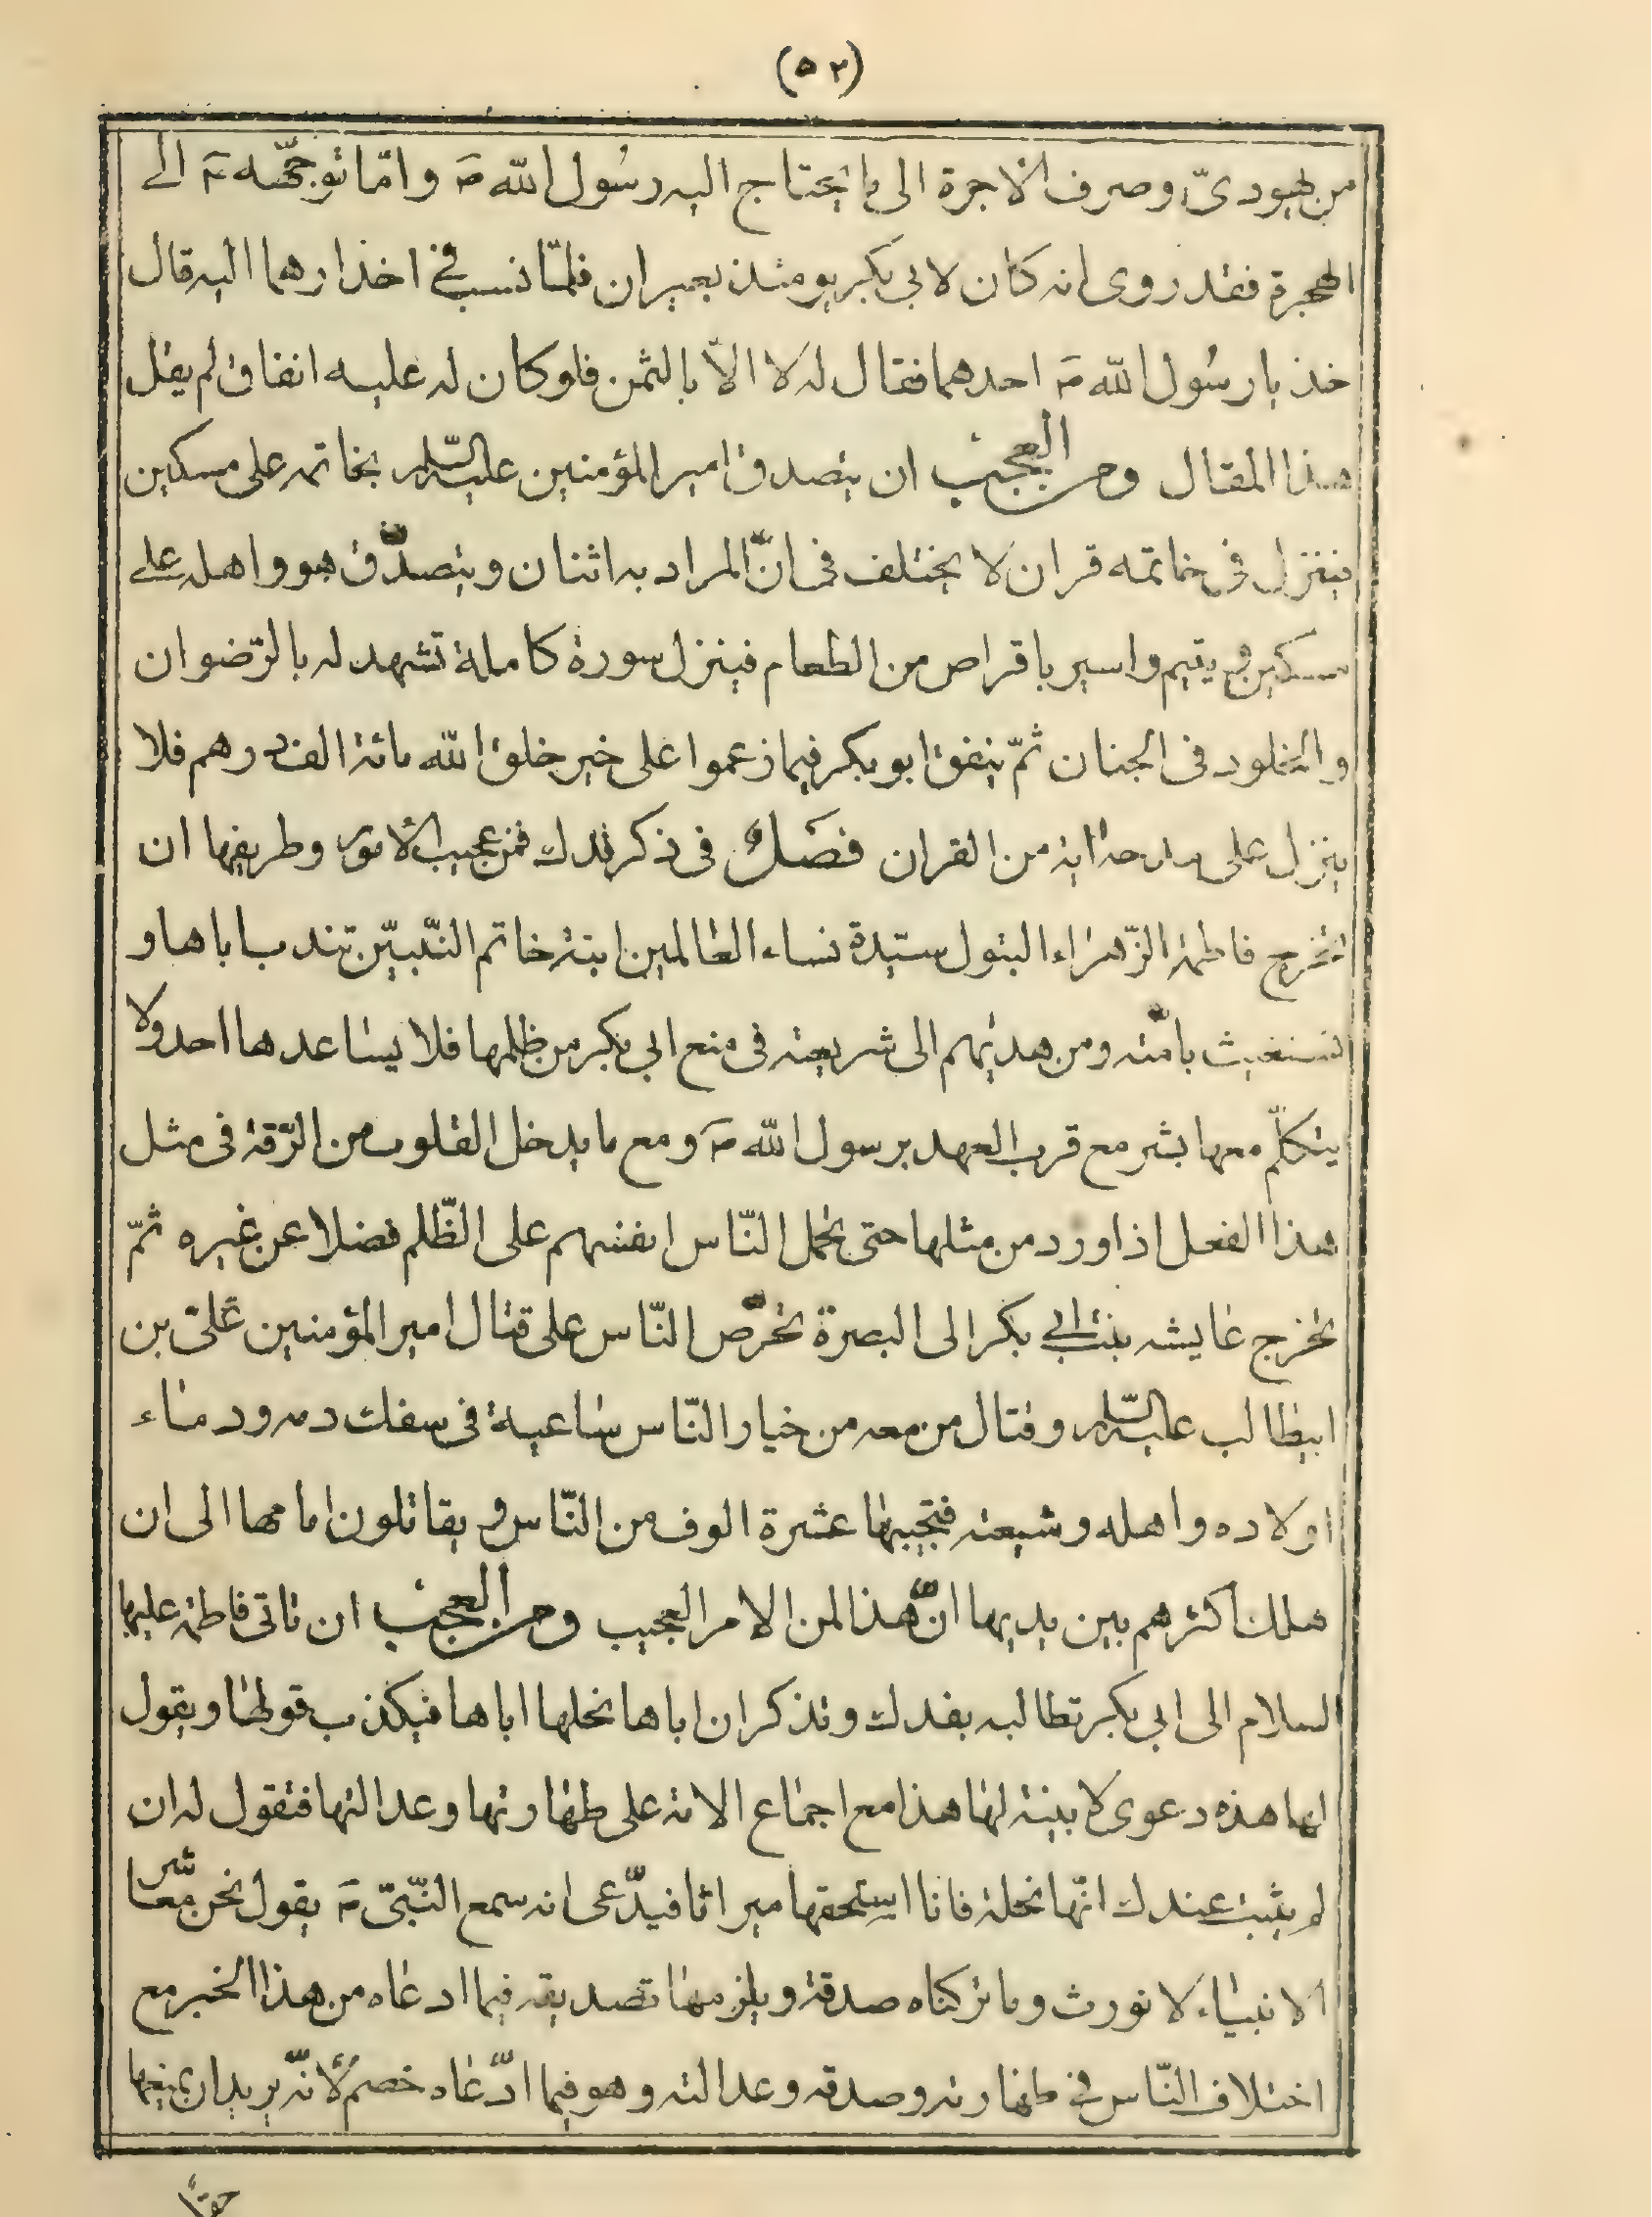 (٥٢)
من يهودىّ وصرف الاجرة الى ما يحتاج اليه رسُول الله ص وامّا توجّهه ص الى
الهجرة فقد روى انه كان لابى بكر يومئذ بعيران فلمّا نسب فى اخذ ارهما اليه قال
خذ يا رسُول الله ص احدهما فقال له لا الّا بالثمن فلو كان له عليه انفاق لم يقل
هذا المقال ومن العجيب ان يتصدق امير المؤمنين عليه السّلام بخاتمه على مسكين
فينزل فى خاتمه قران لا يختلف فى انّ المراد به اثنان ويتصدّق هو واهله على
مسكين و يتيم واسير باقراص من الطعام فينزل سورة كاملة تشهد له بالرّضوان
والخلود فى الجنان ثمّ ينفق ابو بكر فيما زعموا على خير خلق الله مائة الف درهم فلا
ينزل على مدحه اية من القران فصل فى ذكر فدك فمن عجيب الأمور وطريفها ان
تخرج فاطمة الزّهراء البتول سيّدة نساء العالمين ابنة خاتم النّبيّين تندب اباها و
تستغيث بامّته ومن هديٰهم الى شريعته فى منع ابى بكر من ظلمها فلا يساعدها احد ولا
يتكلّم معها بشر مع قرب العهد برسول الله ص ومع ما يدخل القلوب من الرّقة فى مثل
هذا الفعل اذا ورد من مثلها حتى يحمل النّاس انفسهم على الظّلم فضلا عن غيره ثمّ
تخرج عايشه بنت ابى بكر الى البصرة تحرّص النّاس على قتال امير المؤمنين علىّ بن
ابيطالب عليه السّلام وقتال من معه من خيار النّاس ساعية فى سفك دمه ودماء
اولاده واهله وشيعته فتجيبها عشرة الوف من النّاس و يقاتلون امامها الى ان
هلك اكثرهم بين يديها انّ هذا لمن الامر العجيب ومن العجيب ان تاتى فاطمة عليها
السلام الى ابى بكر تطالبه بفدك وتذكر ان اباها نحلها اياها فيكذب قولها ويقول
لها هذه دعوى لا بينة لها هذا مع اجماع الامة على طهارتها وعدالتها فتقول له ان
لم يثبت عندك انّها نحلة فانا استحقها ميراثا فيدّعى انه سمع النّبىّ ص يقول نحن معاشر
الانبياء لا نورث وما تركناه صدقة ويلزمها تصديقه فيما ادعاه من هذا الخبر مع
اختلاف النّاس فى طهارته وصدقه وعدالته وهو فيما ادّعاه خصم لأنّه يريد ان يمنعها
حقّا